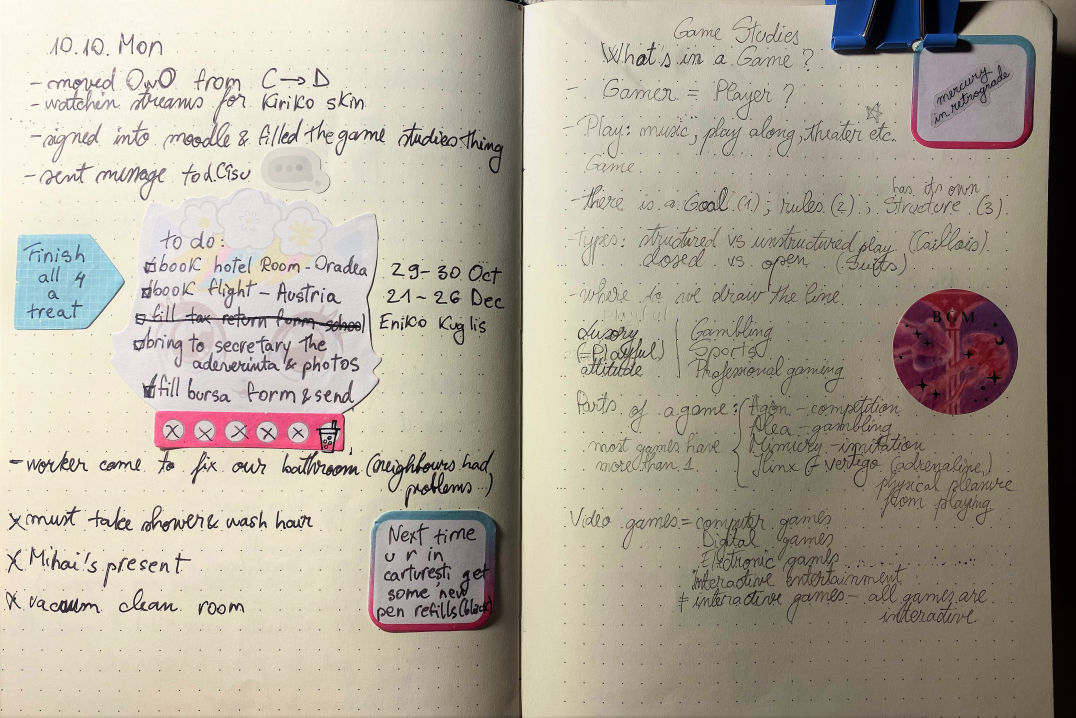 10.10. Mon
- moved OwO from C → D
- watchen streams for Kiriko skin
- signed into moodle & filled the game studies thing
- sent message to d. Cisu
Finish
all 4
a
treat
to do:
book hotel Room - Oradea
29-30 Oct
book flight - Austria
21-26 Dec
fill tax return form school
Eniko Kuglis
bring to secretary the
adeverinta & photos
fill bursa form & send
X X X X X
- worker came to fix our bathroom (neighbours had
problems..)
X must take shower & wash hair
X Mihai's present
X vacuum clean room
Next time
u r in
carturesti get
some new
pen refills (black)
Game Studies
What's in a Game?
mercury
in retrograde
- Gamer = Player?
- Play: music, play along, theater etc.
Game
- there is a Goal (1); rules (2); has its own Structure (3).
- Types: structured vs unstructured play (Caillois).
closed vs open (Suits)
- where do we draw the line
playful
Lusory
(=Playful)
attitude
Gambling
Sports
Profesional gaming
Parts of a game:
Agon - competition
Alea - gambling
Mimicry - imitation
Ilinx & vertigo (adrenaline,)
physical pleasure
from playing
most games have
more than 1
Video games = computer games
Digital games
Electronic games
interactive entertainment
≠ interactive games - all games are
interactive